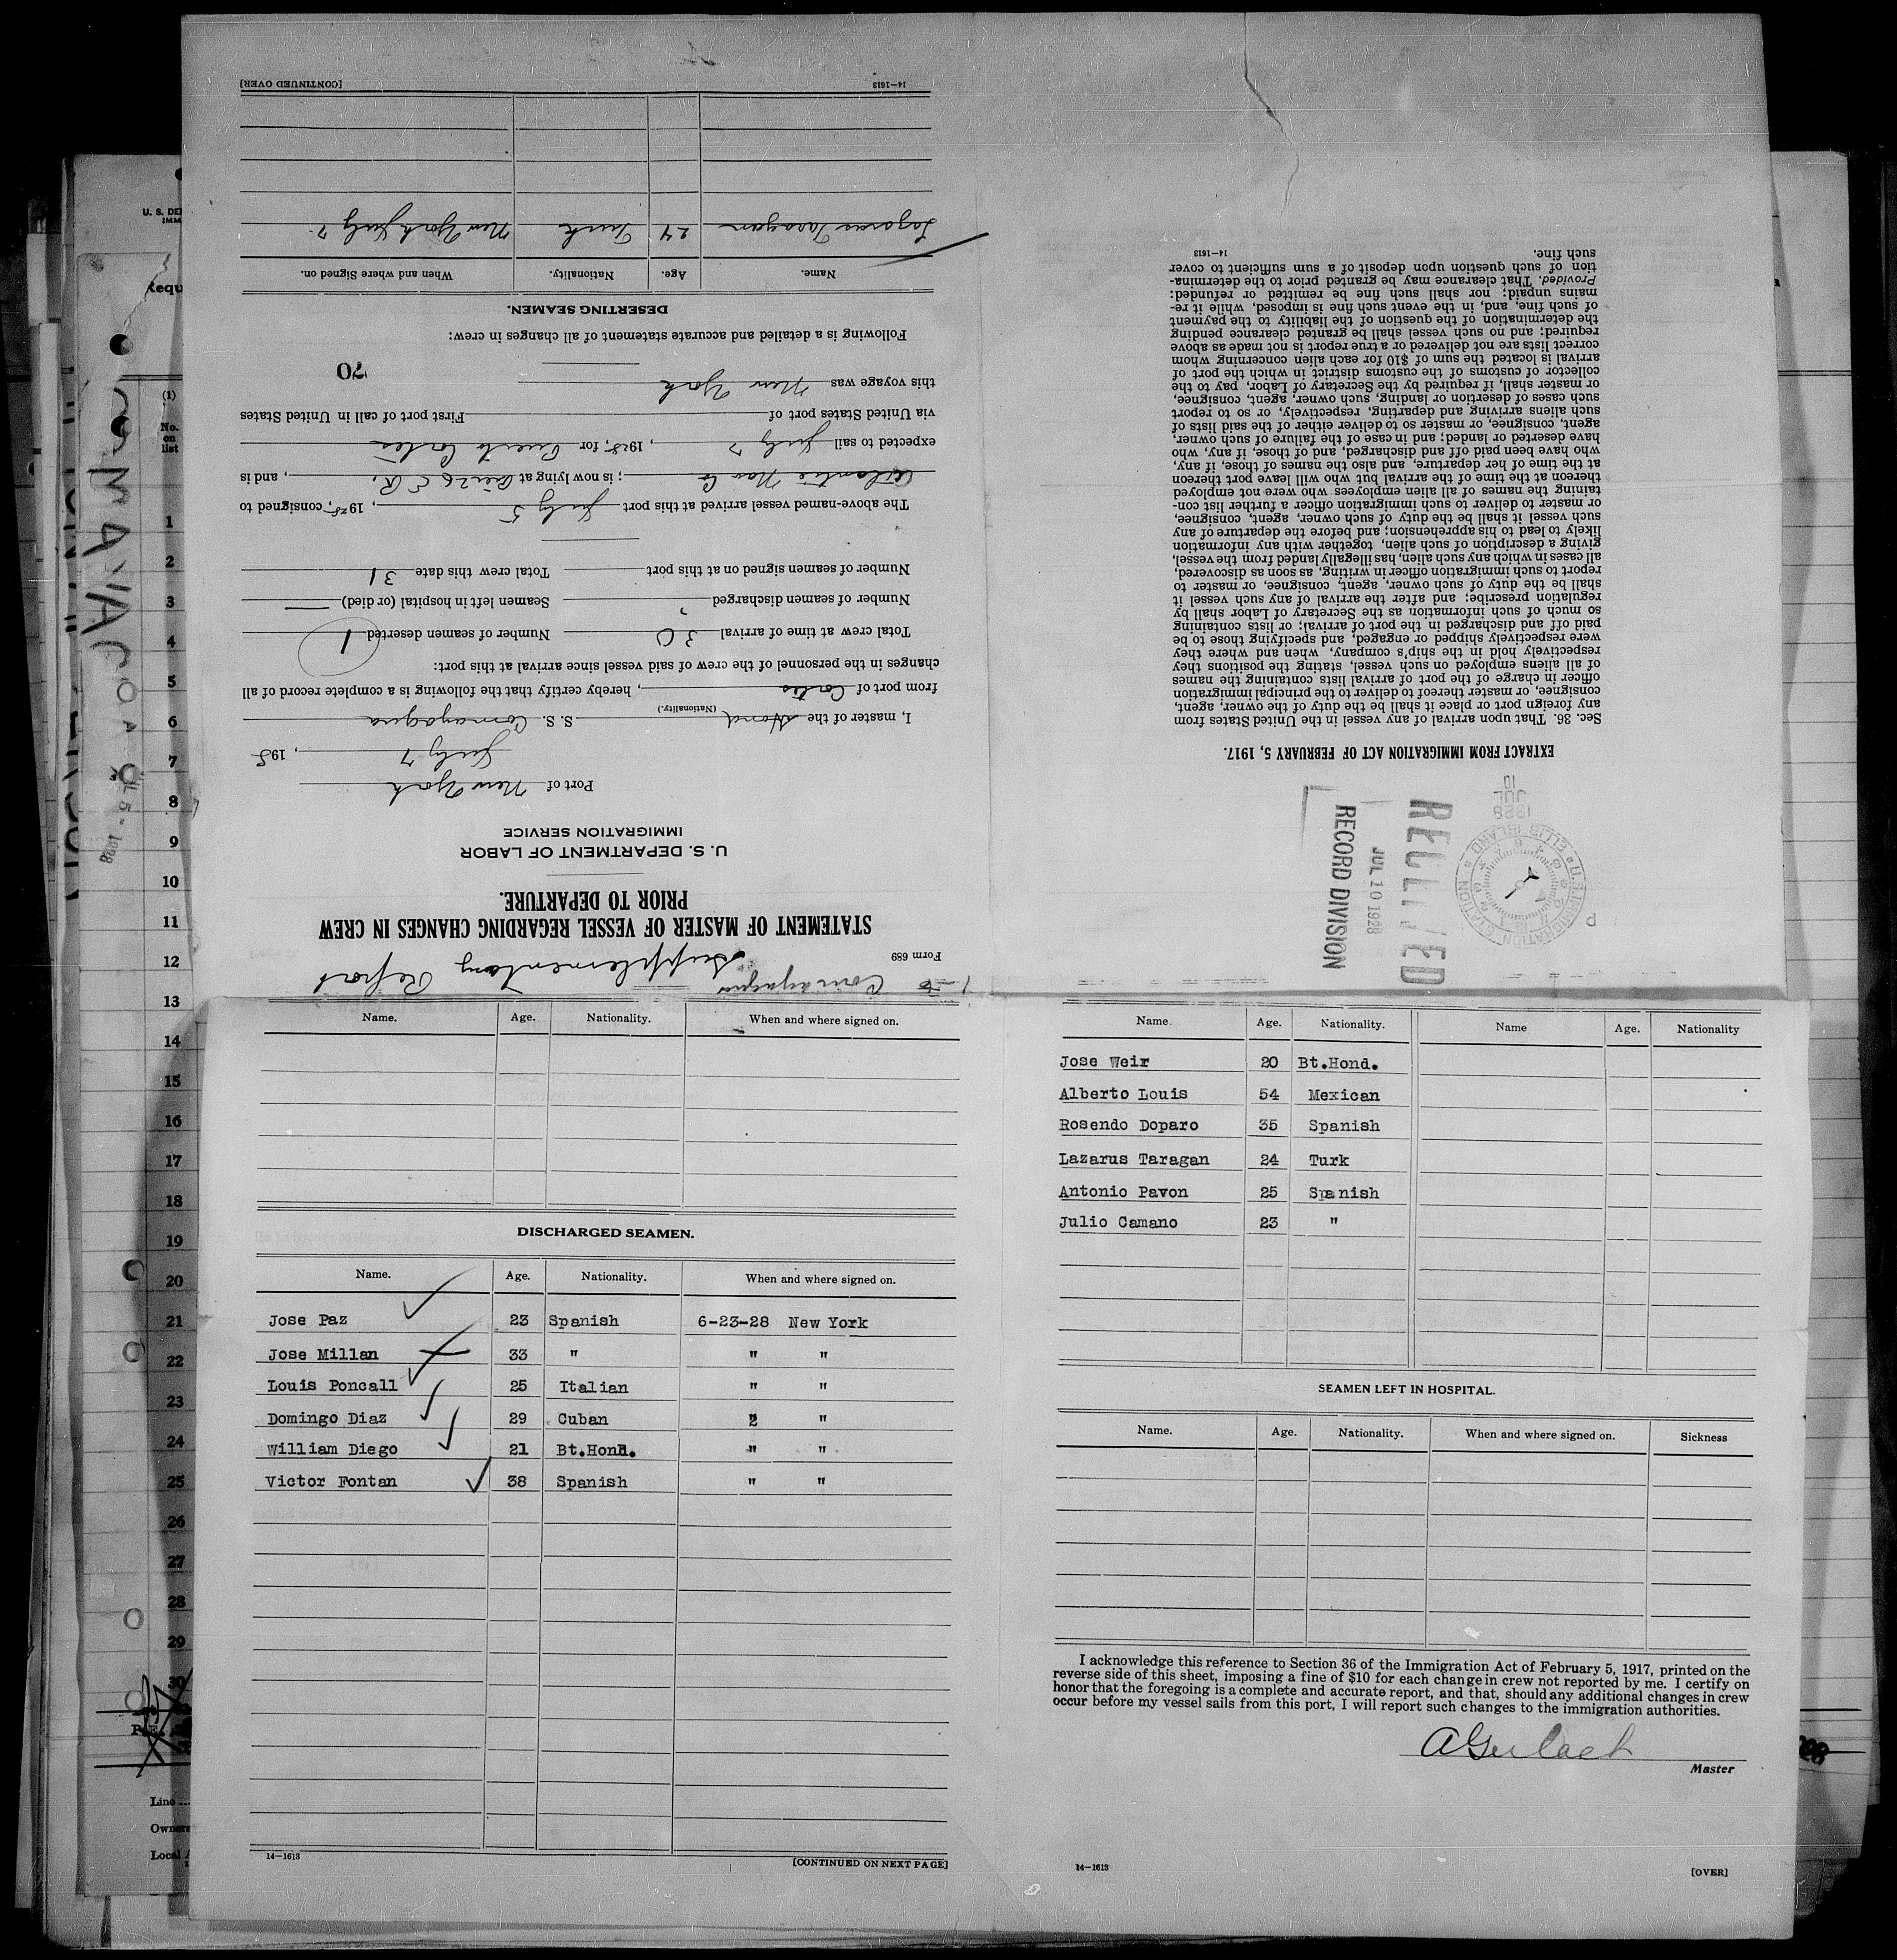 to Comayagua
Supplementary Report
Form 689
STATEMENT OF MASTER OF VESSEL REGARDING CHANGES IN CREW
PRIOR TO DEPARTURE.
U. S. DEPARTMENT OF LABOR
IMMIGRATION SERVICE
Port of New York
July 7, 1928
I, master of the Hond S. S. Comayagua
(Nationality.)
from port of Cortes, hereby certify that the following is a complete record of all
changes in the personnel of the crew of said vessel since arrival at this port:
Total crew at time of arrival 30 Number of seamen deserted 1
Number of seamen discharged Seamen left in hospital (or died)
Number of seamen signed on at this port Total crew this date 31
The above-named vessel arrived at this port July 5, 1928, consigned to
Atlantic Nav Co; is now lying at Pier 26 E R., and is
expected to sail July 7, 1928, for Puerto Cortes
via United States port of First port of call in United States
this voyage was New York
70
Following is a detailed and accurate statement of all changes in crew:
DESERTING SEAMEN.
Name. Age. Nationality. When and where Signed on.
Lazarus Taragan 24 Turk New York July 7
14—1613 [CONTINUED OVER]
U.S. IMMIGRATION STATION ELLIS ISLAND
1928
JUL
10
RECEIVED
JUL 10 1928
RECORD DIVISION
EXTRACT FROM IMMIGRATION ACT OF FEBRUARY 5, 1917.
Sec. 36. That upon arrival of any vessel in the United States from
any foreign port or place it shall be the duty of the owner, agent,
consignee, or master thereof to deliver to the principal immigration
officer in charge of the port of arrival lists containing the names
of all aliens employed on such vessel, stating the positions they
respectively hold in the ship's company, when and where they
were respectively shipped or engaged, and specifying those to be
paid off and discharged in the port of arrival; or lists containing
so much of such information as the Secretary of Labor shall by
regulation prescribe; and after the arrival of any such vessel it
shall be the duty of such owner, agent, consignee, or master to
report to such immigration officer in writing, as soon as discovered,
all cases in which any such alien, has illegally landed from the vessel,
giving a description of such alien, together with any information
likely to lead to his apprehension; and before the departure of any
such vessel it shall be the duty of such owner, agent, consignee,
or master to deliver to such immigration officer a further list con-
taining the names of all alien employees who were not employed
thereon at the time of the arrival but who will leave port thereon
at the time of her departure, and also the names of those, if any,
who have been paid off and discharged, and of those, if any, who
have deserted or landed; and in case of the failure of such owner,
agent, consignee, or master so to deliver either of the said lists of
such aliens arriving and departing, respectively, or so to report
such cases of desertion or landing, such owner, agent, consignee,
or master shall, if required by the Secretary of Labor, pay to the
collector of customs of the customs district in which the port of
arrival is located the sum of $10 for each alien concerning whom
correct lists are not delivered or a true report is not made as above
required; and no such vessel shall be granted clearance pending
the determination of the question of the liability to the payment
of such fine, and, in the event such fine is imposed, while it re-
mains unpaid; nor shall such fine be remitted or refunded:
Provided, That clearance may be granted prior to the determina-
tion of such question upon deposit of a sum sufficient to cover
such fine.
14—1613
Name. Age. Nationality. When and where signed on.
DISCHARGED SEAMEN.
Name. Age. Nationality. When and where signed on.
Jose Paz 23 Spanish 6-23-28 New York
Jose Millan 33 " " "
Louis Poncall 25 Italian " "
Domingo Diaz 29 Cuban " "
William Diego 21 Bt.Hond. " "
Victor Fontan 38 Spanish " "
14—1613 [CONTINUED ON NEXT PAGE]
Name. Age. Nationality. Name Age. Nationality
Jose Weir 20 Bt.Hond.
Alberto Louis 54 Mexican
Rosendo Doparo 35 Spanish
Lazarus Taragan 24 Turk
Antonio Pavon 25 Spanish
Julio Camano 23 "
SEAMEN LEFT IN HOSPITAL.
Name. Age. Nationality. When and where signed on. Sickness
I acknowledge this reference to Section 36 of the Immigration Act of February 5, 1917, printed on the
reverse side of this sheet, imposing a fine of $10 for each change in crew not reported by me. I certify on
honor that the foregoing is a complete and accurate report, and that, should any additional changes in crew
occur before my vessel sails from this port, I will report such changes to the immigration authorities.
A Gerlach
Master
14—1613 [OVER]
U. S. DE
IMM
Requ
COMAYAGUA
JUL 5 - 1928
(1)
No.
on
list
1
2
3
4
5
6
7
8
9
10
11
12
13
14
15
16
17
18
19
20
21
22
23
24
25
26
27
28
29
30
Line
Owner
Local